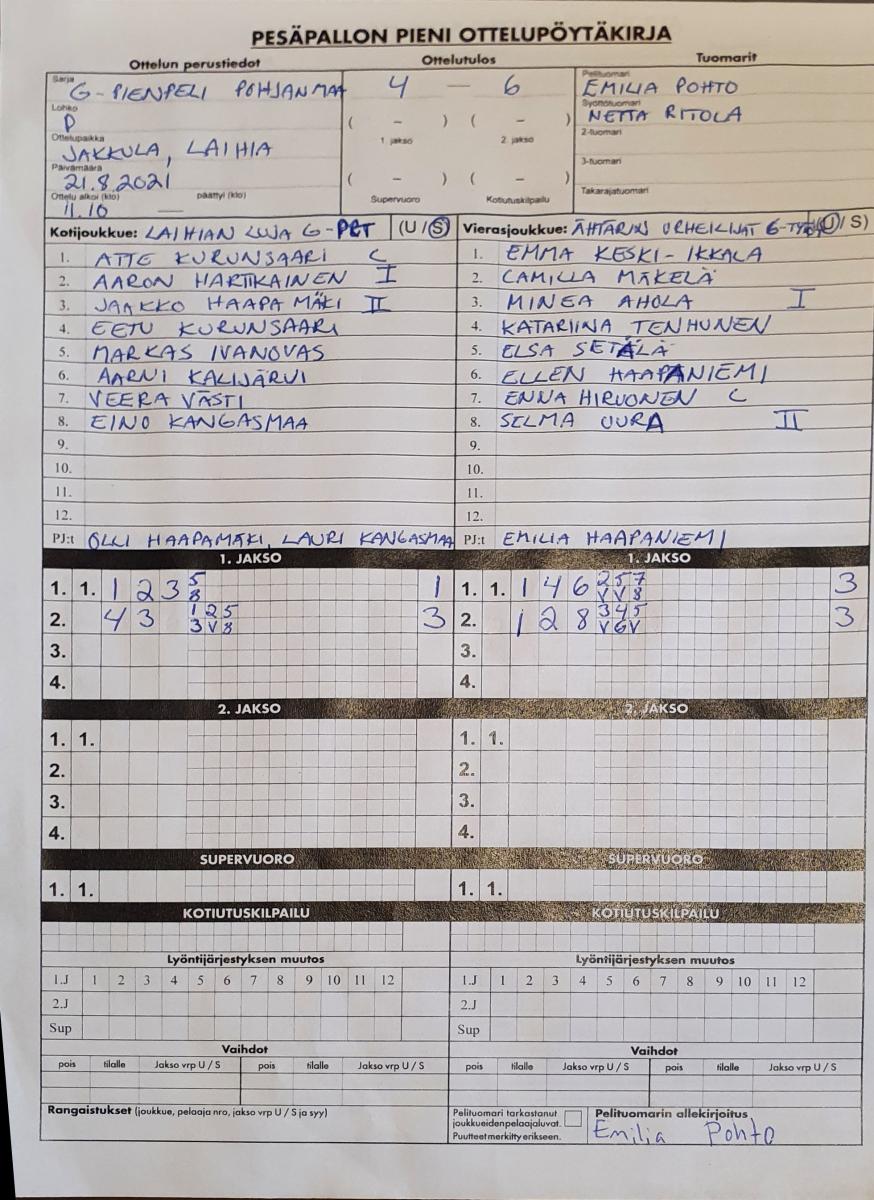 PESÄPALLON PIENI OTTELUPÖYTÄKIRJA
Ottelun perustiedot
Sarja
G-PIENPELI POHJANMAA
Lohko
P
Ottelupaikka
JAKKULA, LAIHIA
Päivämäärä
21.8.2021
Ottelu alkoi (klo) päättyi (klo)
11.10 —
Ottelutulos
4 — 6
( – ) ( – )
1. jakso 2. jakso
( – ) ( – )
Supervuoro Kotiutuskilpailu
Tuomarit
Pelituomari
EMILIA POHTO
Syöttötuomari
NETTA RITOLA
2-tuomari
3-tuomari
Takarajatuomari
Kotijoukkue: LAIHIAN LUJA G- (U/S)
1. ATTE KURUNSAARI C
2. AARON HARTIKAINEN I
3. JAAKKO HAAPAMÄKI II
4. EETU KURUNSAARI
5. MARKAS IVANOVAS
6. AARNI KALIJÄRVI
7. VEERA VÄSTI
8. EINO KANGASMAA
9.
10.
11.
12.
PJ:t OLLI HAAPAMÄKI, LAURI KANGASMAA
Vierasjoukkue: ÄHTÄRIN URHEILIJAT G- (U/S)
1. EMMA KESKI-IKKALA
2. CAMILLA MÄKELÄ
3. MINEA AHOLA I
4. KATARIINA TENHUNEN
5. ELSA SETÄLÄ
6. ELLEN HAAPANIEMI
7. ENNA HIRVONEN C
8. SELMA UURA II
9.
10.
11.
12.
PJ:t EMILIA HAAPANIEMI
1. JAKSO
1. 1. 1 2 3 5 1
8
2. 4 3 1 2 5 3
3 V 8
3.
4.
1. JAKSO
1. 1. 1 4 6 2 5 7 3
V V 8
2. 1 2 8 3 4 5 3
V 6 V
3.
4.
2. JAKSO
1. 1.
2.
3.
4.
2. JAKSO
1. 1.
2.
3.
4.
SUPERVUORO
1. 1.
SUPERVUORO
1. 1.
KOTIUTUSKILPAILU
KOTIUTUSKILPAILU
Lyöntijärjestyksen muutos
1.J 1 2 3 4 5 6 7 8 9 10 11 12
2.J
Sup
Lyöntijärjestyksen muutos
1.J 1 2 3 4 5 6 7 8 9 10 11 12
2.J
Sup
Vaihdot
pois tilalle Jakso vrp U / S pois tilalle Jakso vrp U / S
Vaihdot
pois tilalle Jakso vrp U / S pois tilalle Jakso vrp U / S
Rangaistukset (joukkue, pelaaja nro, jakso vrp U / S ja syy)
Pelituomari tarkastanut
joukkueiden pelaajaluvat.
Puutteet merkitty erikseen.
Pelituomarin allekirjoitus
Emilia Pohto